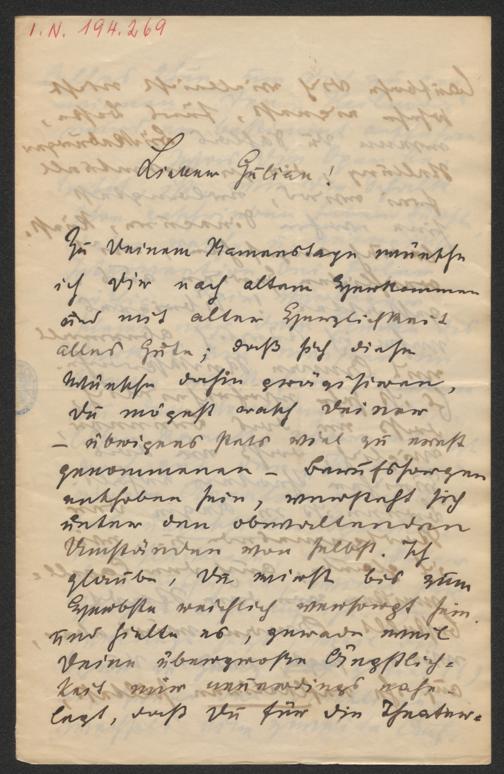 I.N. 194.269
Lieber Julian!
Zu Deinem Namenstage wünsche
ich Dir nach altem Herkommen
und mit alter Herzlichkeit
alles Gute; daß sich diese
Wünsche dahin präzisieren,
Du mögest rasch Deiner
– übrigens stets viel zu ernst
genommenen – Berufssorgen
enthoben sein, versteht sich
unter den obwaltenden
Umständen von selbst. Ich
glaube, Du wirst bis zum
Herbste reichlich versorgt sein
und hielte es, gerade weil
Deine übergroße Ängstlich=
keit mir neuerdings nahe
legt, daß Du für die Theater=